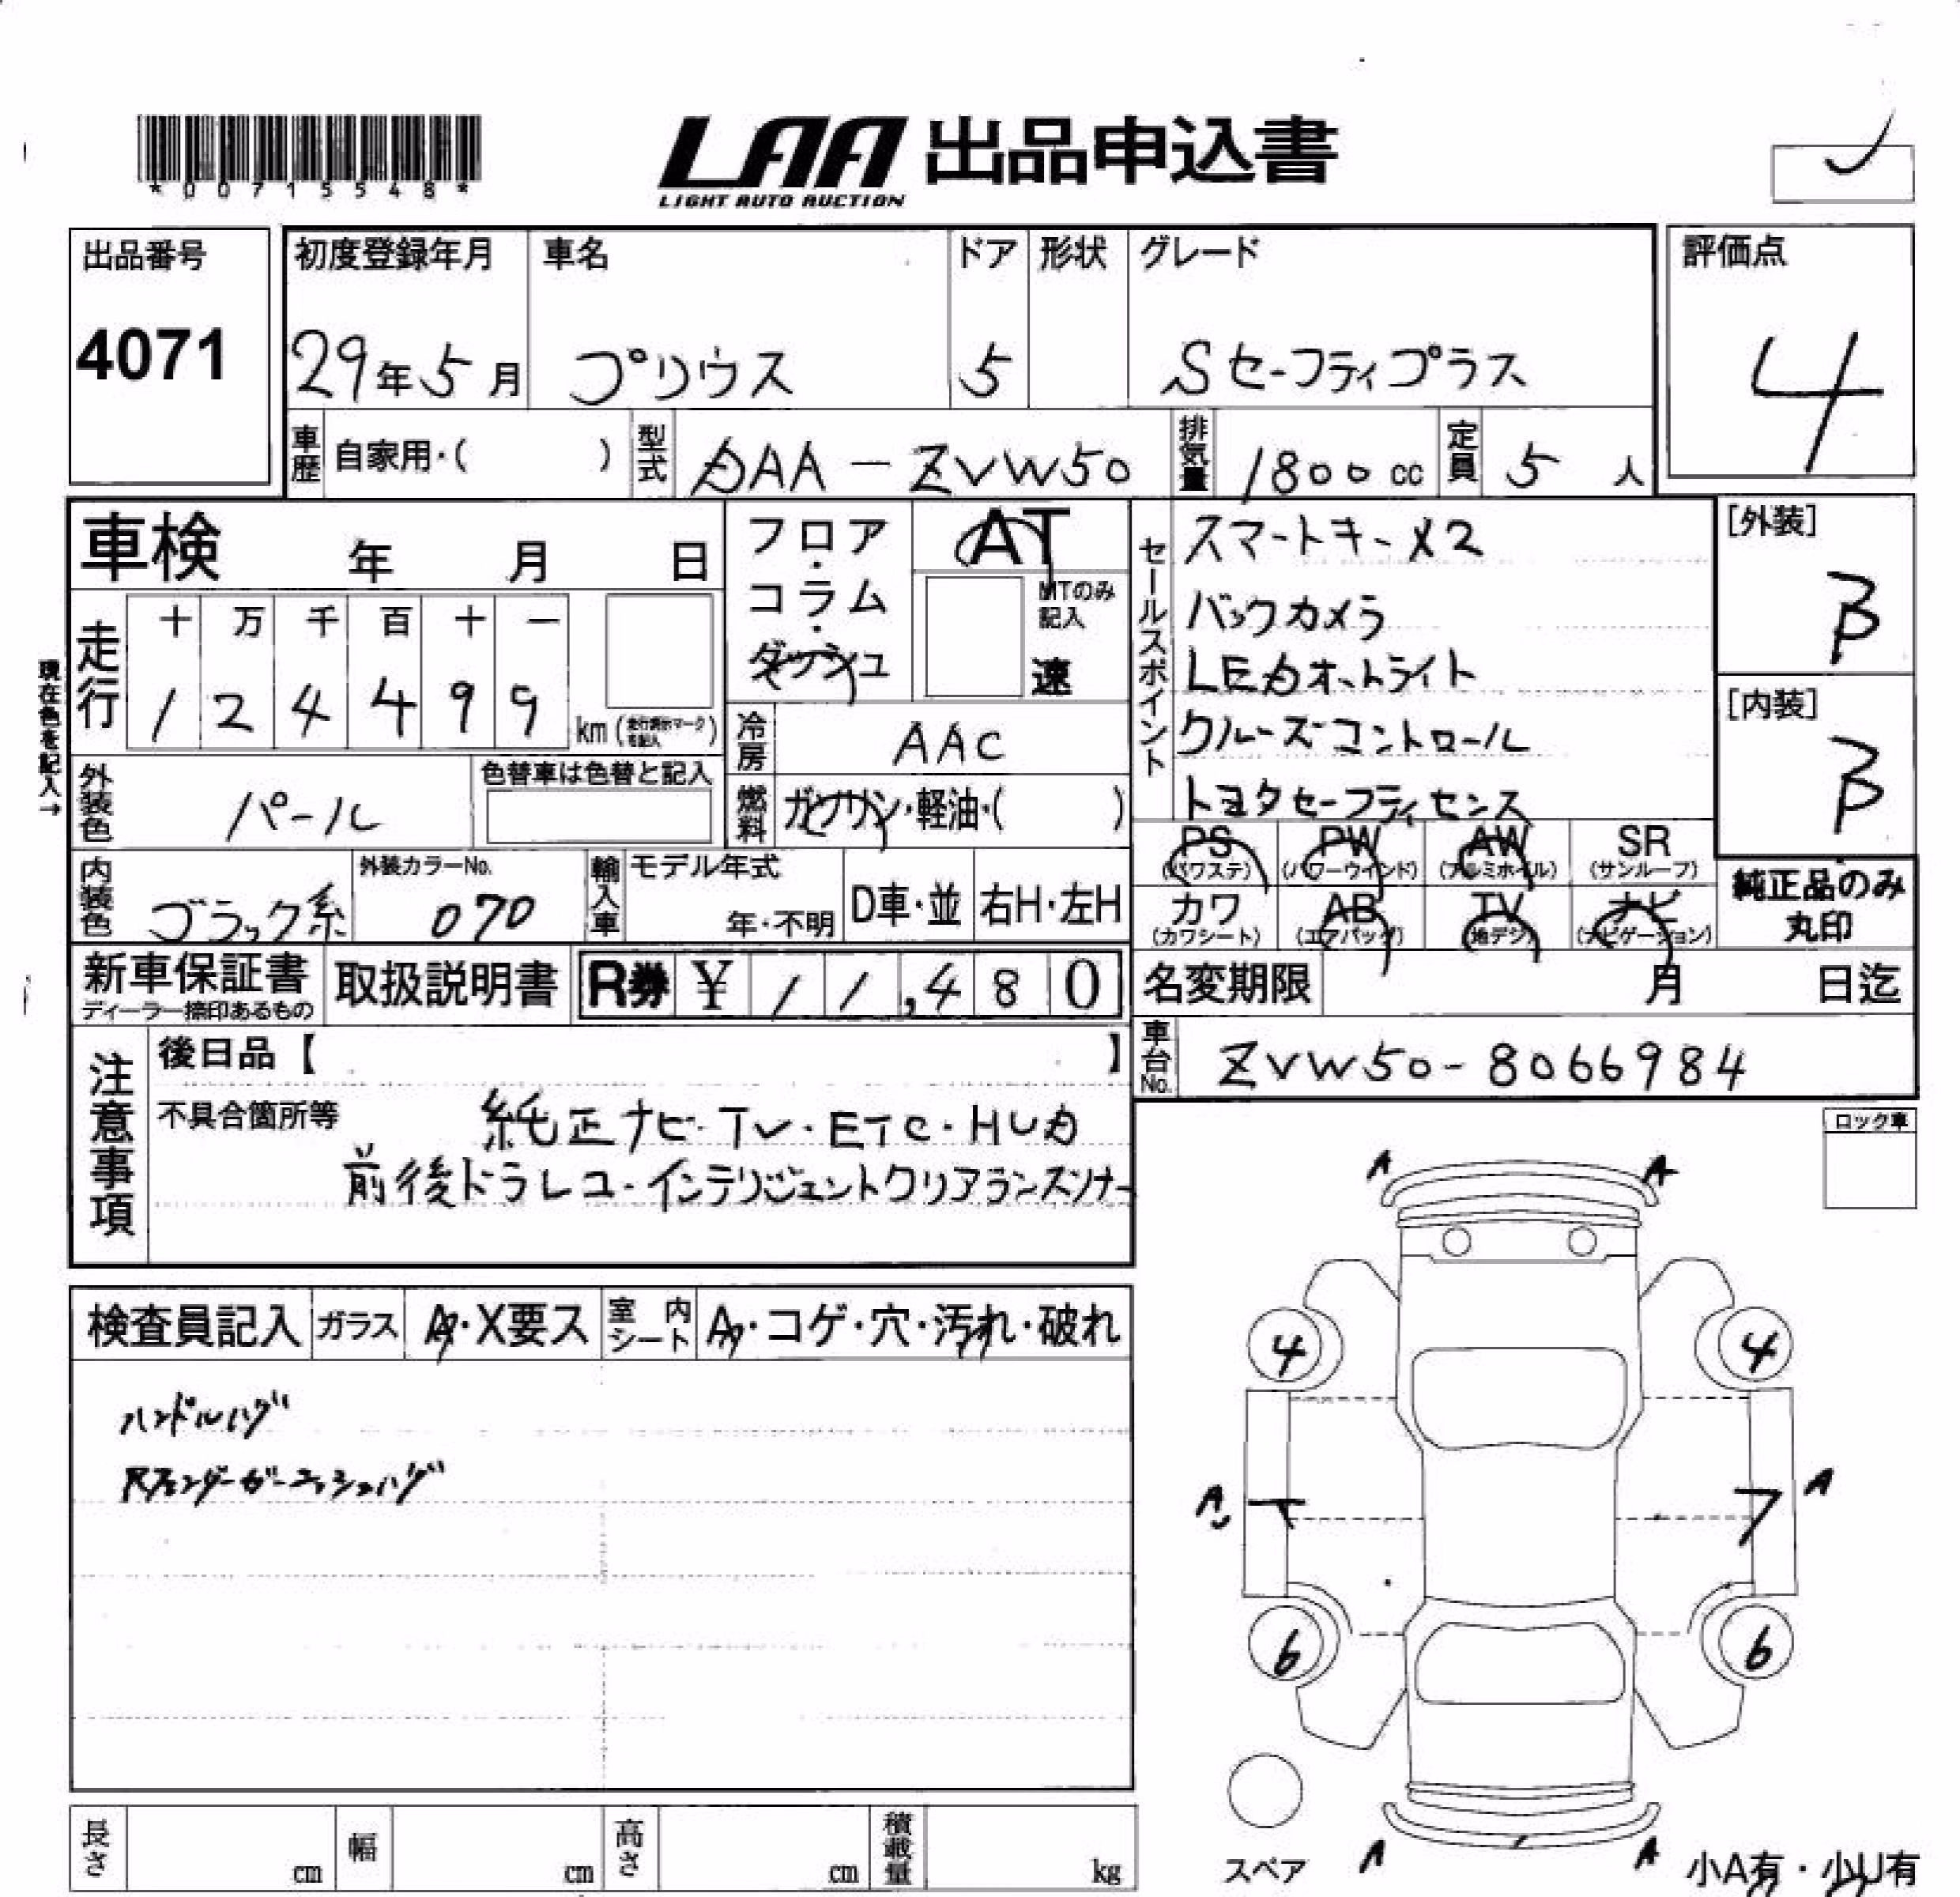 *00715548*
LAA 出品申込書
LIGHT AUTO AUCTION
出品番号
4071
初度登録年月
29年5月
車名
プリウス
ドア
5
形状
グレード
Sセーフティプラス
評価点
4
車歴
自家用・( )
型式
DAA-ZVW50
排気量
1800cc
定員
5人
車検 年 月 日
フロア・コラム・ダッシュ
AT
MTのみ記入
速
セールスポイント
スマートキーX2
バックカメラ
LEDオートライト
クルーズコントロール
トヨタセーフティセンス
[外装]
B
[内装]
B
現在色を記入→
走行
十 万 千 百 十 一
1 2 4 4 9 9
km(走行表示マークを記入)
冷房
AAC
燃料
ガソリン・軽油・( )
外装色
パール
色替車は色替と記入
内装色
ブラック系
外装カラーNo.
070
輸入車
モデル年式
年・不明
D車・並
右H・左H
PS (パワステ)
PW (パワーウインド)
AW (アルミホイル)
SR (サンルーフ)
カワ (カワシート)
AB (エアバッグ)
TV (地デジ)
ナビ (ナビゲーション)
純正品のみ
丸印
新車保証書
ディーラー捺印あるもの
取扱説明書
R券 ¥11,480
名変期限 月 日迄
車台No.
ZVW50-8066984
注意事項
後日品【 】
不具合箇所等
純正ナビ・TV・ETC・HUD
前後ドラレコ・インテリジェントクリアランスソナー
ロック車
検査員記入
ガラス
A・X要ス
室内シート
A・コゲ・穴・汚れ・破れ
ハンドルハゲ
Rフェンダーガーニッシュハゲ
A A
4 4
A A
6 6
A A
スペア
小A有・小U有
長さ cm
幅 cm
高さ cm
積載量 kg